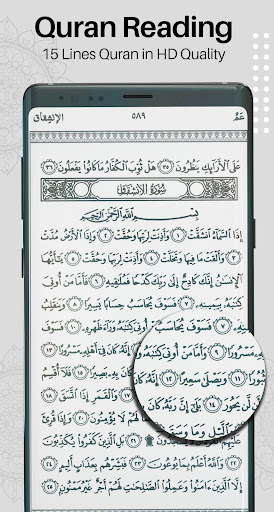 Quran Reading
15 Lines Quran in HD Quality
عَمَّ ٥٨٩ الإنشقاق
عَلَى ٱلۡأَرَآئِكِ يَنظُرُونَ ٣٥ هَلۡ ثُوِّبَ ٱلۡكُفَّارُ مَا كَانُواْ يَفۡعَلُونَ ٣٦
سُورَةُ الانشِقَاقِ
بِسۡمِ ٱللَّهِ ٱلرَّحۡمَٰنِ ٱلرَّحِيمِ
إِذَا ٱلسَّمَآءُ ٱنشَقَّتۡ ١ وَأَذِنَتۡ لِرَبِّهَا وَحُقَّتۡ ٢ وَإِذَا ٱلۡأَرۡضُ مُدَّتۡ
٣ وَأَلۡقَتۡ مَا فِيهَا وَتَخَلَّتۡ ٤ وَأَذِنَتۡ لِرَبِّهَا وَحُقَّتۡ ٥ يَٰٓأَيُّهَا
ٱلۡإِنسَٰنُ إِنَّكَ كَادِحٌ إِلَىٰ رَبِّكَ كَدۡحٗا فَمُلَٰقِيهِ ٦ فَأَمَّا مَنۡ أُوتِيَ
كِتَٰبَهُۥ بِيَمِينِهِۦ ٧ فَسَوۡفَ يُحَاسَبُ حِسَابٗا يَسِيرٗا
مَسۡرُورٗا ٩ وَأَمَّا مَنۡ أُوتِيَ كِتَٰبَهُۥ وَرَآءَ ظَهۡرِهِۦ ١٠
فَسَوۡفَ
ثُبُورٗا ١١ وَيَصۡلَىٰ سَعِيرًا ١٢ إِنَّهُۥ كَانَ فِيٓ أَهۡلِهِۦ مَسۡرُورًا
لَّن يَحُورَ ١٤ بَلَىٰٓ إِنَّ رَبَّهُۥ كَانَ بِهِۦ بَصِيرٗا ١٥ فَلَآ أُقۡسِمُ
وَٱلَّيۡلِ وَمَا وَسَقَ ١٧ وَٱلۡقَمَرِ إِذَا ٱتَّسَقَ
فَمَا لَهُمۡ لَا يُؤۡمِنُونَ ٢٠ وَإِذَا قُرِئَ
عَلَيۡهِمُ ٱلۡقُرۡءَانُ لَا يَسۡجُدُونَ ٢١ بَلِ ٱلَّذِينَ كَفَرُواْ يُكَذِّبُونَ
٢٢ وَٱللَّهُ أَعۡلَمُ بِمَا يُوعُونَ ٢٣ فَبَشِّرۡهُم بِعَذَابٍ أَلِيمٍ
٢٤ إِلَّا ٱلَّذِينَ ءَامَنُواْ وَعَمِلُواْ ٱلصَّٰلِحَٰتِ لَهُمۡ أَجۡرٌ غَيۡرُ مَمۡنُونِۭ ٢٥